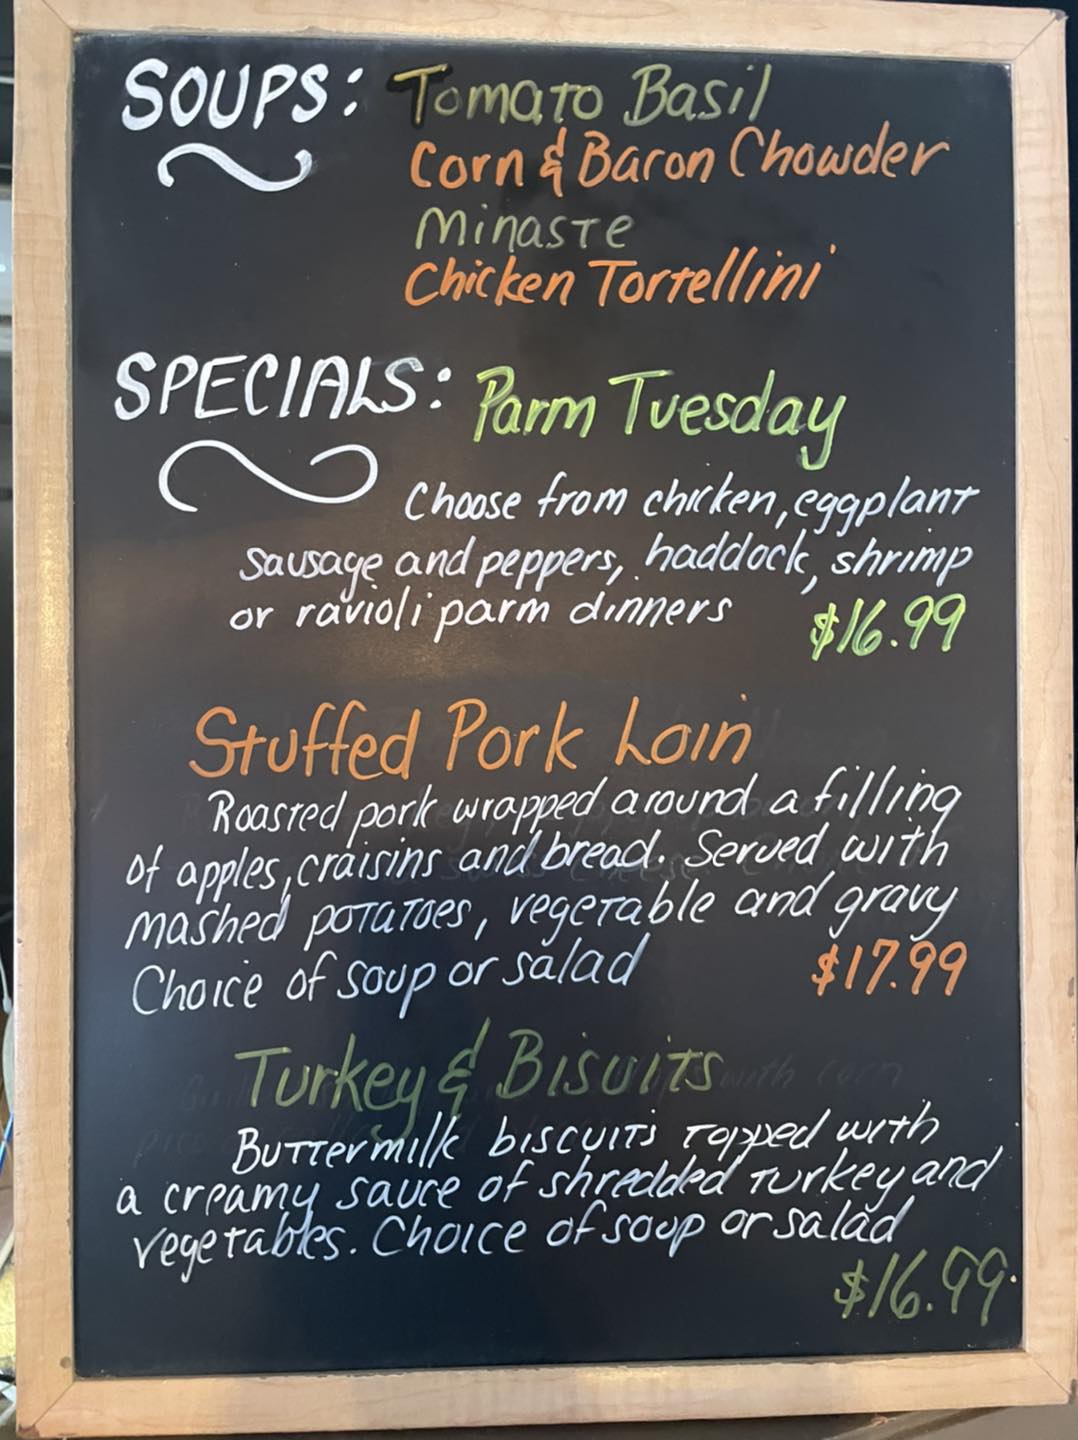 SOUPS: Tomato Basil
Corn & Bacon Chowder
Minaste
Chicken Tortellini
SPECIALS: Parm Tuesday
Choose from chicken, eggplant
sausage and peppers, haddock, shrimp
or ravioli parm dinners $16.99
Stuffed Pork Loin
Roasted pork wrapped around a filling
of apples, craisins and bread. Served with
mashed potatoes, vegetable and gravy
Choice of soup or salad $17.99
Turkey & Biscuits
Buttermilk biscuits topped with
a creamy sauce of shredded turkey and
vegetables. Choice of soup or salad
$16.99